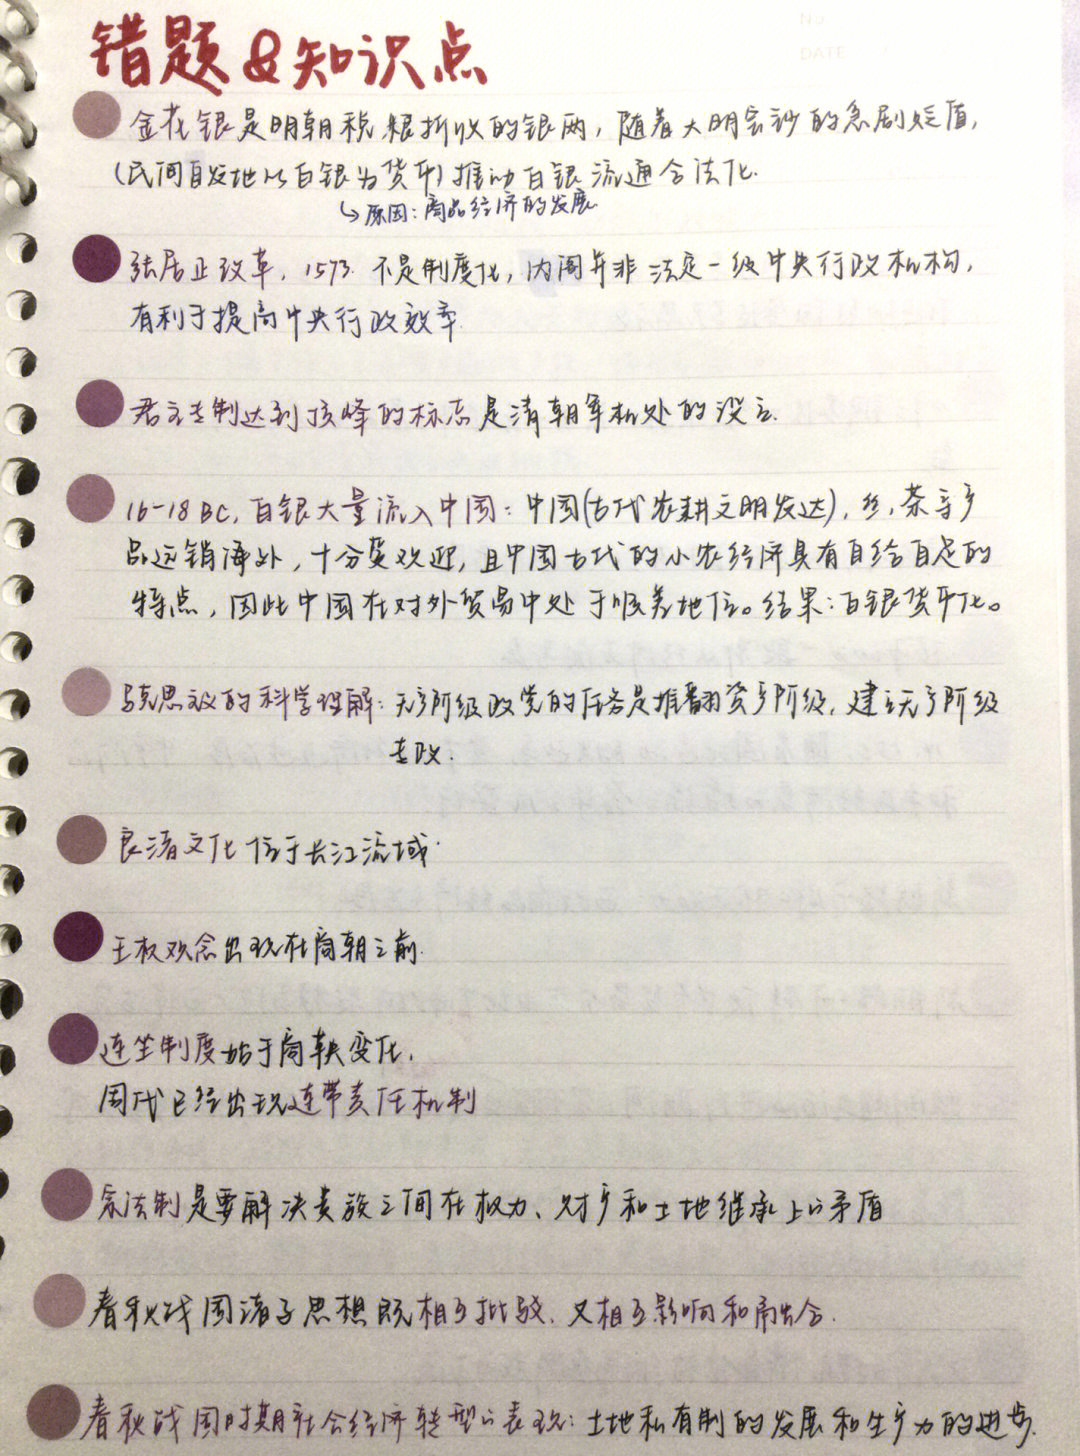 错题&知识点
金花银是明朝税粮折收的银两，随着大明宝钞的急剧贬值，
(民间自发地以白银为货币)推动白银流通合法化.
↳原因:商品经济的发展
张居正改革，1573. 不是制度化，内阁并非法定一级中央行政机构，
有利于提高中央行政效率.
君主专制达到顶峰的标志是清朝军机处的设立.
16-18 BC, 白银大量流入中国: 中国(古代农耕文明发达)，丝，茶等产
品远销海外，十分受欢迎，且中国古代的小农经济具有自给自足的
特点，因此中国在对外贸易中处于顺差地位。结果:白银货币化。
马克思主义的科学理解: 无产阶级政党的任务是推翻资产阶级，建立无产阶级
专政.
良渚文化位于长江流域.
王权观念出现在商朝之前.
连坐制度始于商鞅变化，
周代已经出现连带责任机制
宗法制是要解决贵族之间在权力、财产和土地继承上的矛盾
春秋战国诸子思想既相互批驳、又相互影响和融合.
春秋战国时期社会经济转型的表现: 土地私有制的发展和生产力的进步.